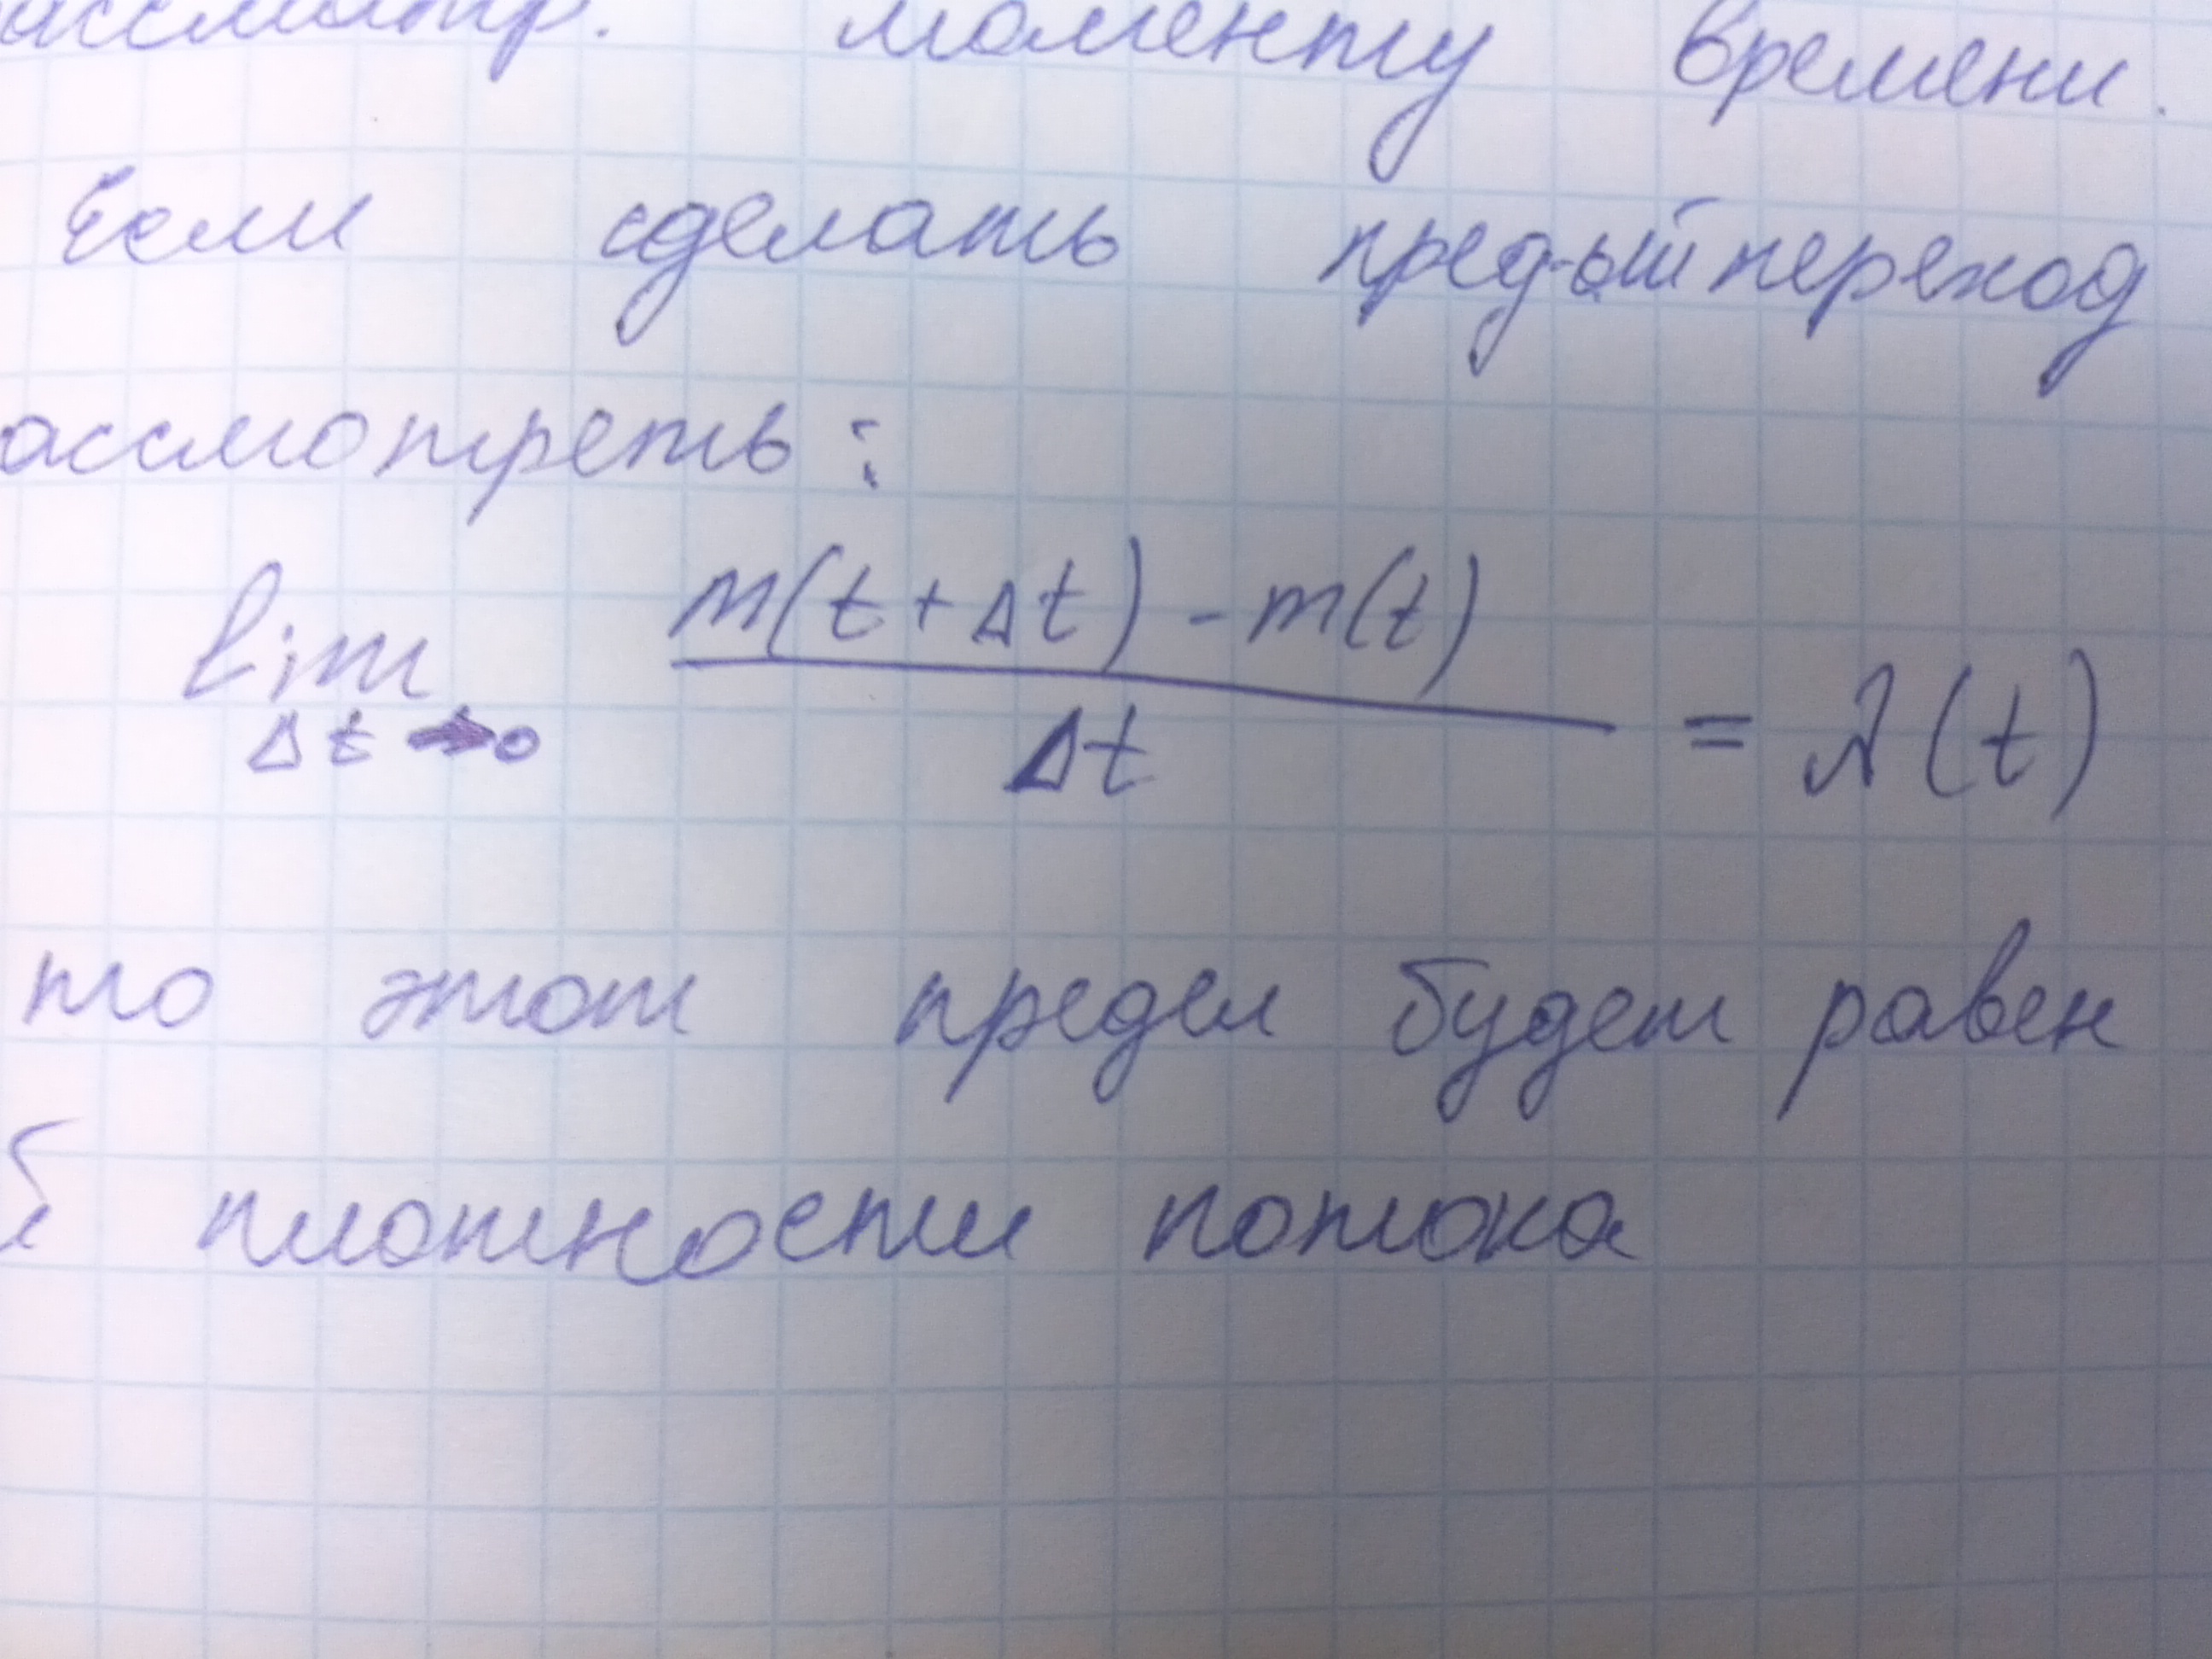 ассмотр. моменту времени.
Если сделать пред-ый переход
ассмотреть:
lim Δt→0 (m(t+Δt) - m(t)) / Δt = λ(t)
то этот предел будет равен
плотности потока